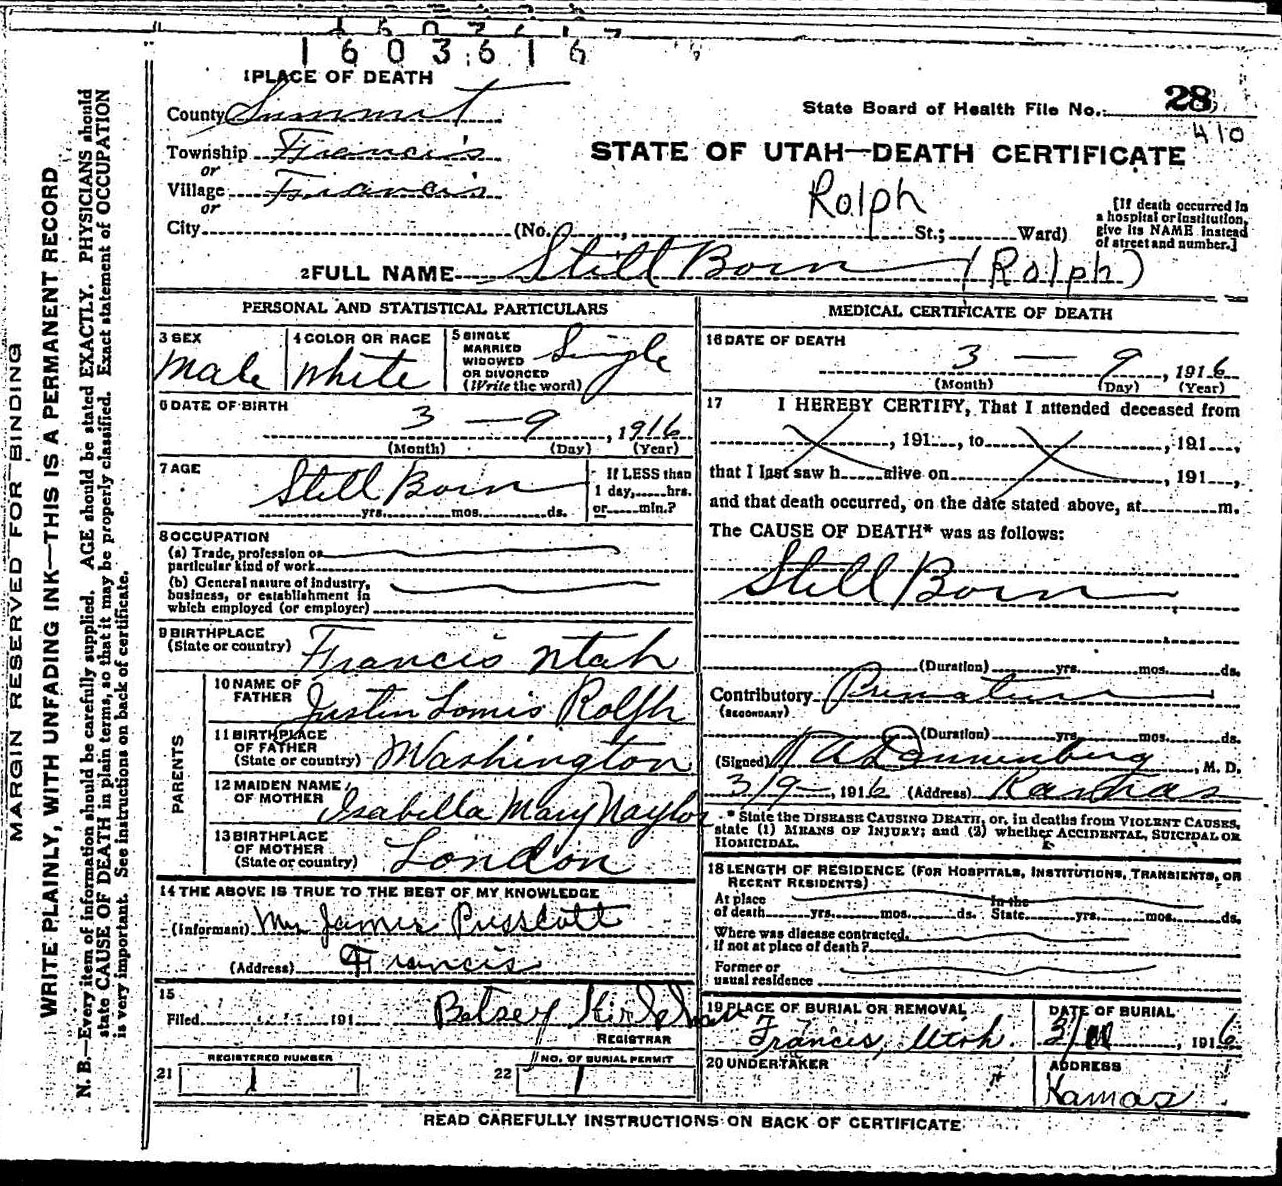 1603616
1 PLACE OF DEATH
County Summit
State Board of Health File No. 28
410
Township Francis
or
STATE OF UTAH—DEATH CERTIFICATE
Village Francis
or
Rolph
City (No. , St.; Ward)
[If death occurred in
a hospital or institution,
give its NAME instead
of street and number.]
2 FULL NAME Still Born (Rolph)
PERSONAL AND STATISTICAL PARTICULARS
3 SEX
Male
4 COLOR OR RACE
White
5 SINGLE
MARRIED
WIDOWED
OR DIVORCED
(Write the word)
Single
6 DATE OF BIRTH
3 — 9 , 1916
(Month) (Day) (Year)
7 AGE
Still Born
yrs. mos. ds.
If LESS than
1 day, hrs.
or min.?
8 OCCUPATION
(a) Trade, profession or
particular kind of work
(b) General nature of industry,
business, or establishment in
which employed (or employer)
9 BIRTHPLACE
(State or country) Francis Utah
PARENTS
10 NAME OF
FATHER Justin Lomis Rolph
11 BIRTHPLACE
OF FATHER
(State or country) Washington
12 MAIDEN NAME
OF MOTHER Isabella Mary Naylor
13 BIRTHPLACE
OF MOTHER
(State or country) London
14 THE ABOVE IS TRUE TO THE BEST OF MY KNOWLEDGE
(Informant) Mrs James Prescott
(Address) Francis
15
Filed 191 Betsey
REGISTRAR
REGISTERED NUMBER
21 1
NO. OF BURIAL PERMIT
22 1
MEDICAL CERTIFICATE OF DEATH
16 DATE OF DEATH
3 — 9 , 1916
(Month) (Day) (Year)
17 I HEREBY CERTIFY, That I attended deceased from
, 191 , to , 191 ,
that I last saw h alive on , 191 ,
and that death occurred, on the date stated above, at m.
The CAUSE OF DEATH* was as follows:
Still Born
(Duration) yrs. mos. ds.
Contributory Premature
(SECONDARY)
(Duration) yrs. mos. ds.
(Signed) Dannenberg , M. D.
3/9 , 1916 (Address) Kamas
* State the DISEASE CAUSING DEATH, or, in deaths from VIOLENT CAUSES,
state (1) MEANS OF INJURY; and (2) whether ACCIDENTAL, SUICIDAL OR
HOMICIDAL.
18 LENGTH OF RESIDENCE (FOR HOSPITALS, INSTITUTIONS, TRANSIENTS, OR
RECENT RESIDENTS)
At place In the
of death yrs. mos. ds. State yrs. mos. ds.
Where was disease contracted,
if not at place of death?
Former or
usual residence
19 PLACE OF BURIAL OR REMOVAL
Francis, Utah.
DATE OF BURIAL
3/ , 1916
20 UNDERTAKER
ADDRESS
Kamas
READ CAREFULLY INSTRUCTIONS ON BACK OF CERTIFICATE
MARGIN RESERVED FOR BINDING
WRITE PLAINLY, WITH UNFADING INK—THIS IS A PERMANENT RECORD
N. B.—Every item of information should be carefully supplied. AGE should be stated EXACTLY. PHYSICIANS should
state CAUSE OF DEATH in plain terms, so that it may be properly classified. Exact statement of OCCUPATION
is very important. See instructions on back of certificate.